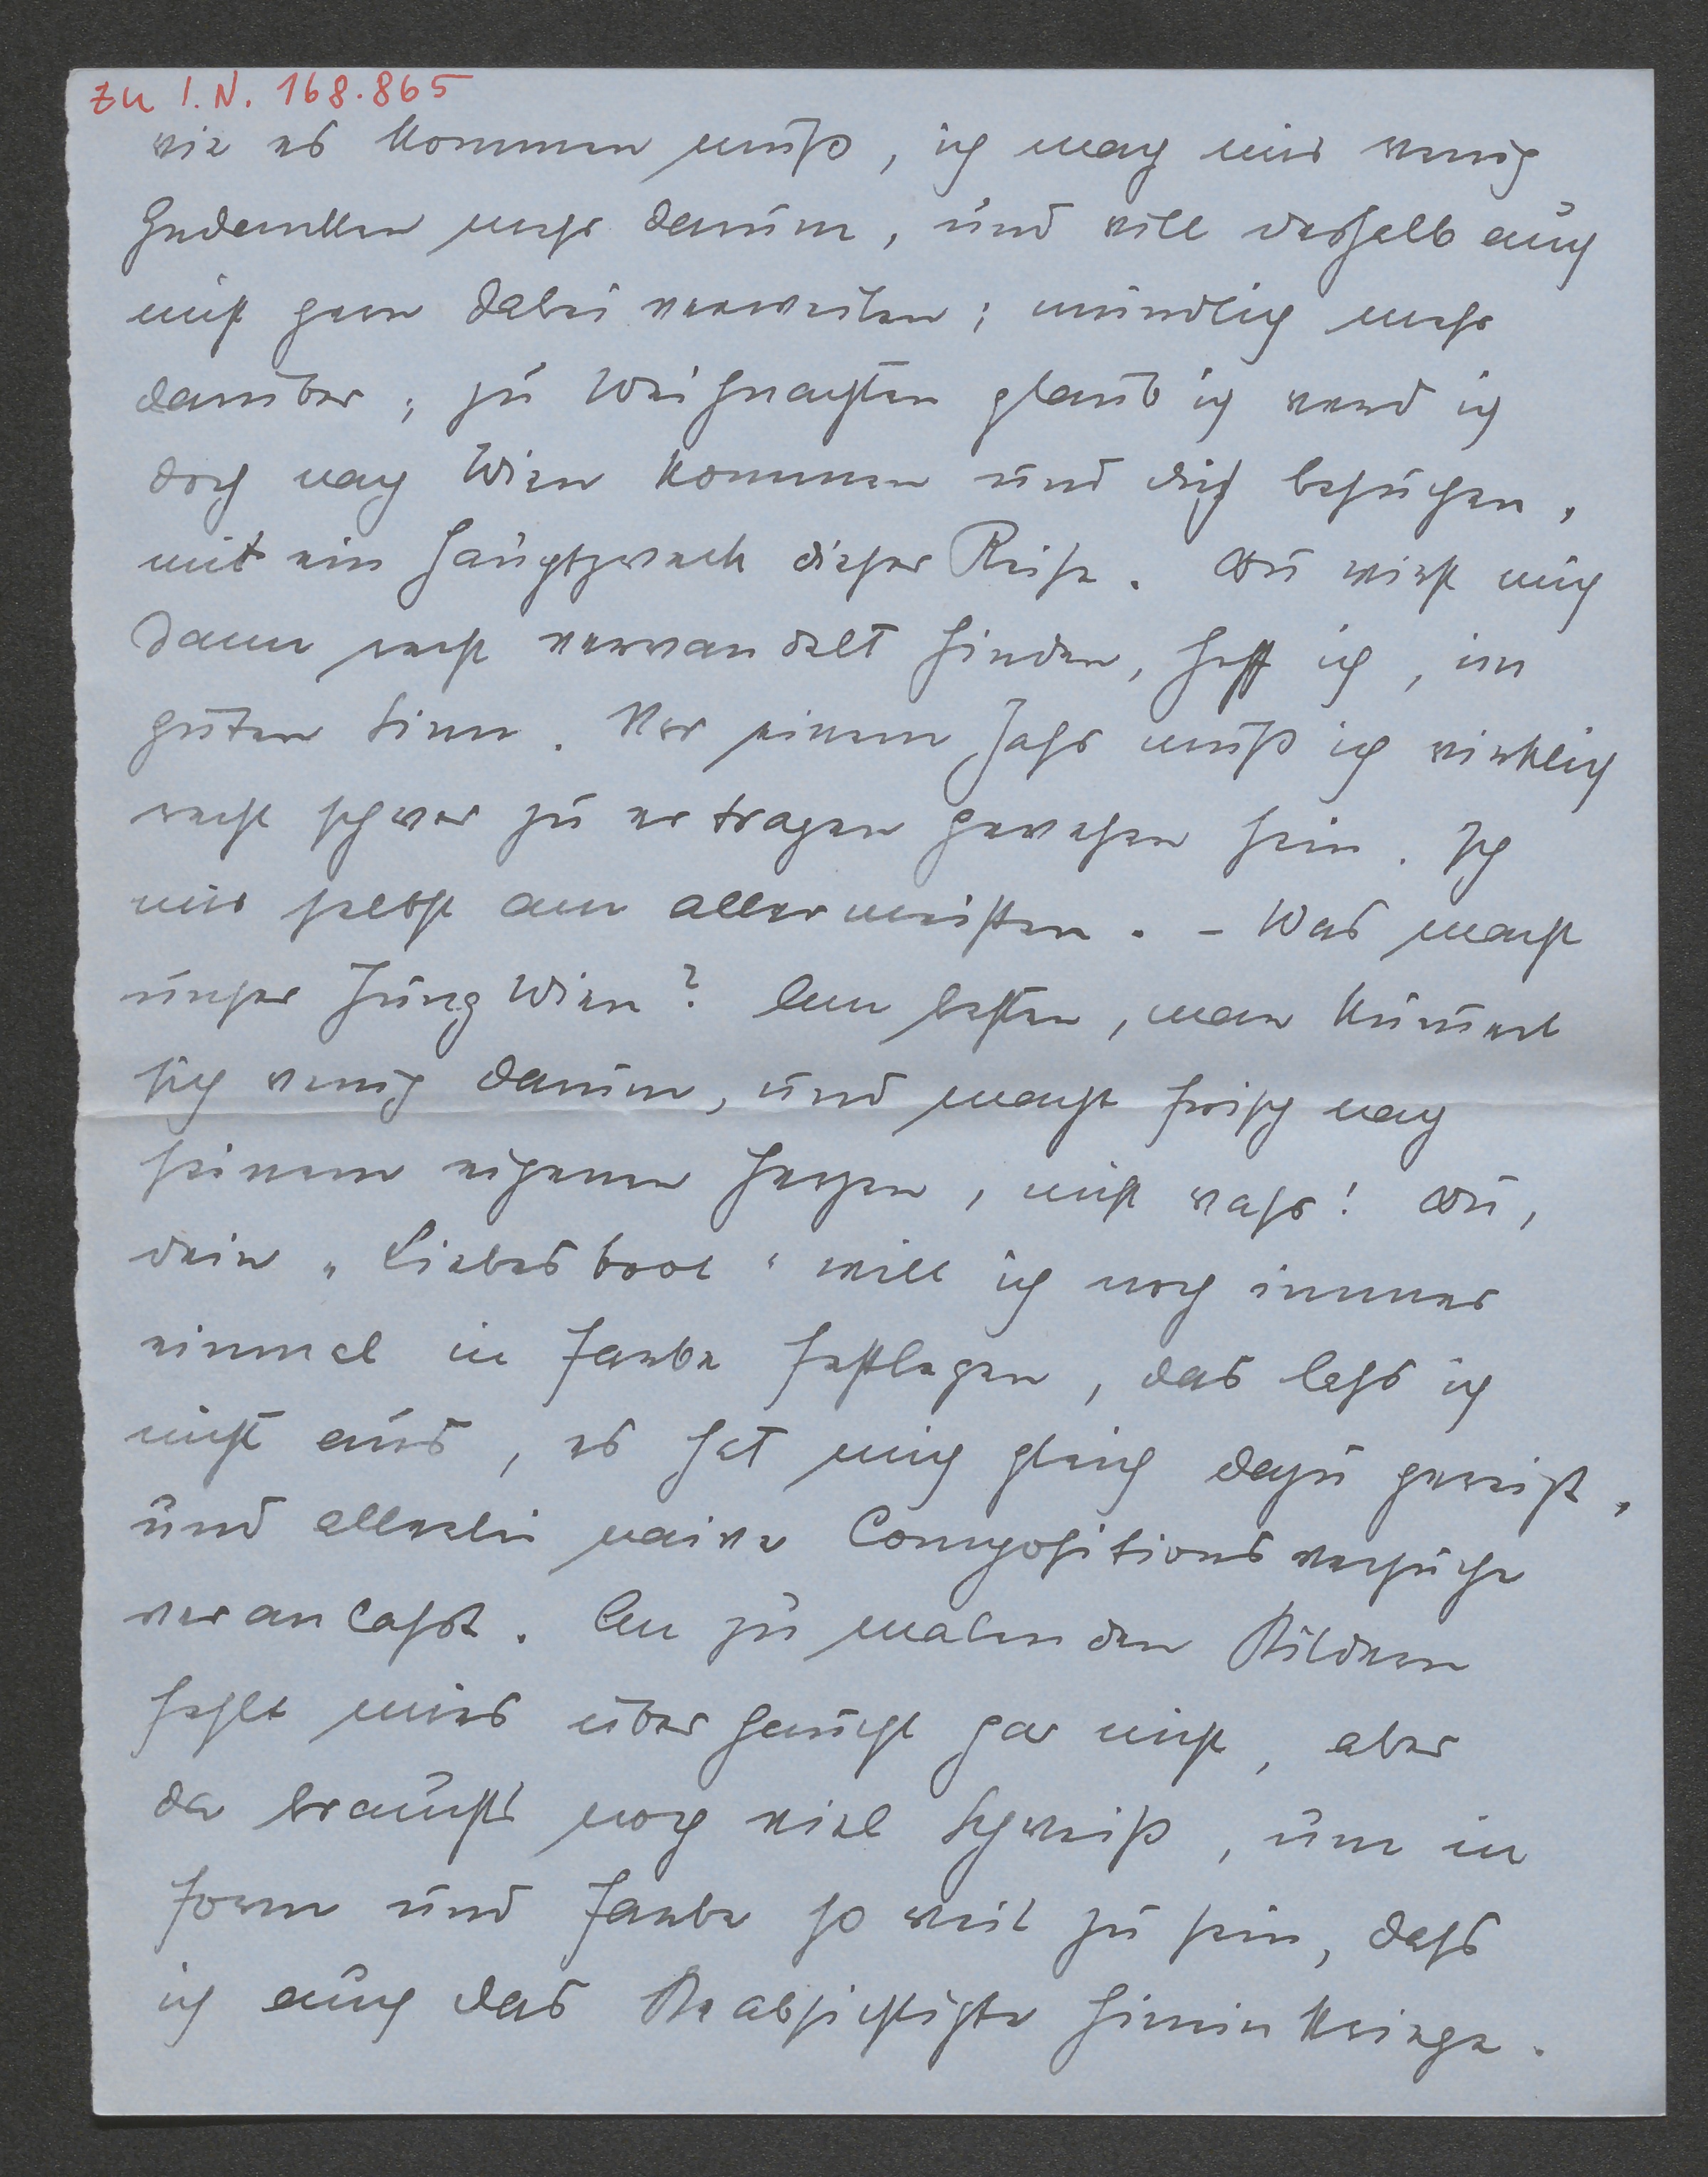 zu I.N. 168.865
wie es kommen muß, ich mach mir wenig
Gedanken mehr darum, und will deshalb auch
nicht gern dabei verweilen; mündlich mehr
darüber; zu Weihnachten glaub ich werd ich
doch nach Wien kommen und dich besuchen,
mit ein Hauptzweck dieser Reise. Du wirst mich
dann recht verwandelt finden, hoff ich, im
guten Sinn. Vor einem Jahr muß ich wirklich
recht schwer zu ertragen gewesen sein. Ich
mir selbst am allermeisten. – Was macht
unser Jung Wien? Am besten, man kümmert
sich wenig darum, und macht frisch nach
seinem eigenen Herzen, nicht wahr! Du,
dein „Liebesboot“ will ich noch immer
einmal in Farbe festlegen, das lass ich
nicht aus, es hat mich gleich dazu gereizt,
und allerlei naive Compositionsversuche
veranlasst. An zu malenden Bildern
fehlt mirs überhaupt gar nicht, aber
da brauchts noch viel Schweiß, um in
Form und Farbe so weit zu sein, dass
ich auch das Beabsichtigte hineinkriege.